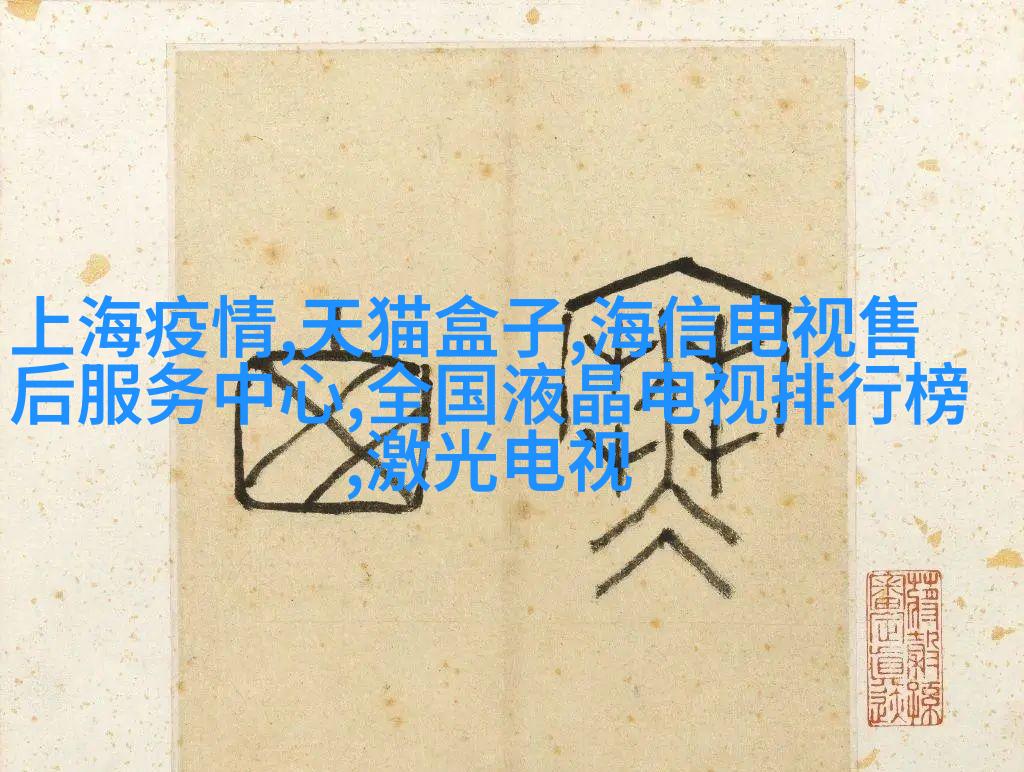 上海疫情,天猫盒子,海信电视售
后服务中心,全国液晶电视排行榜
,激光电视
蔣穀孫
審定真迹